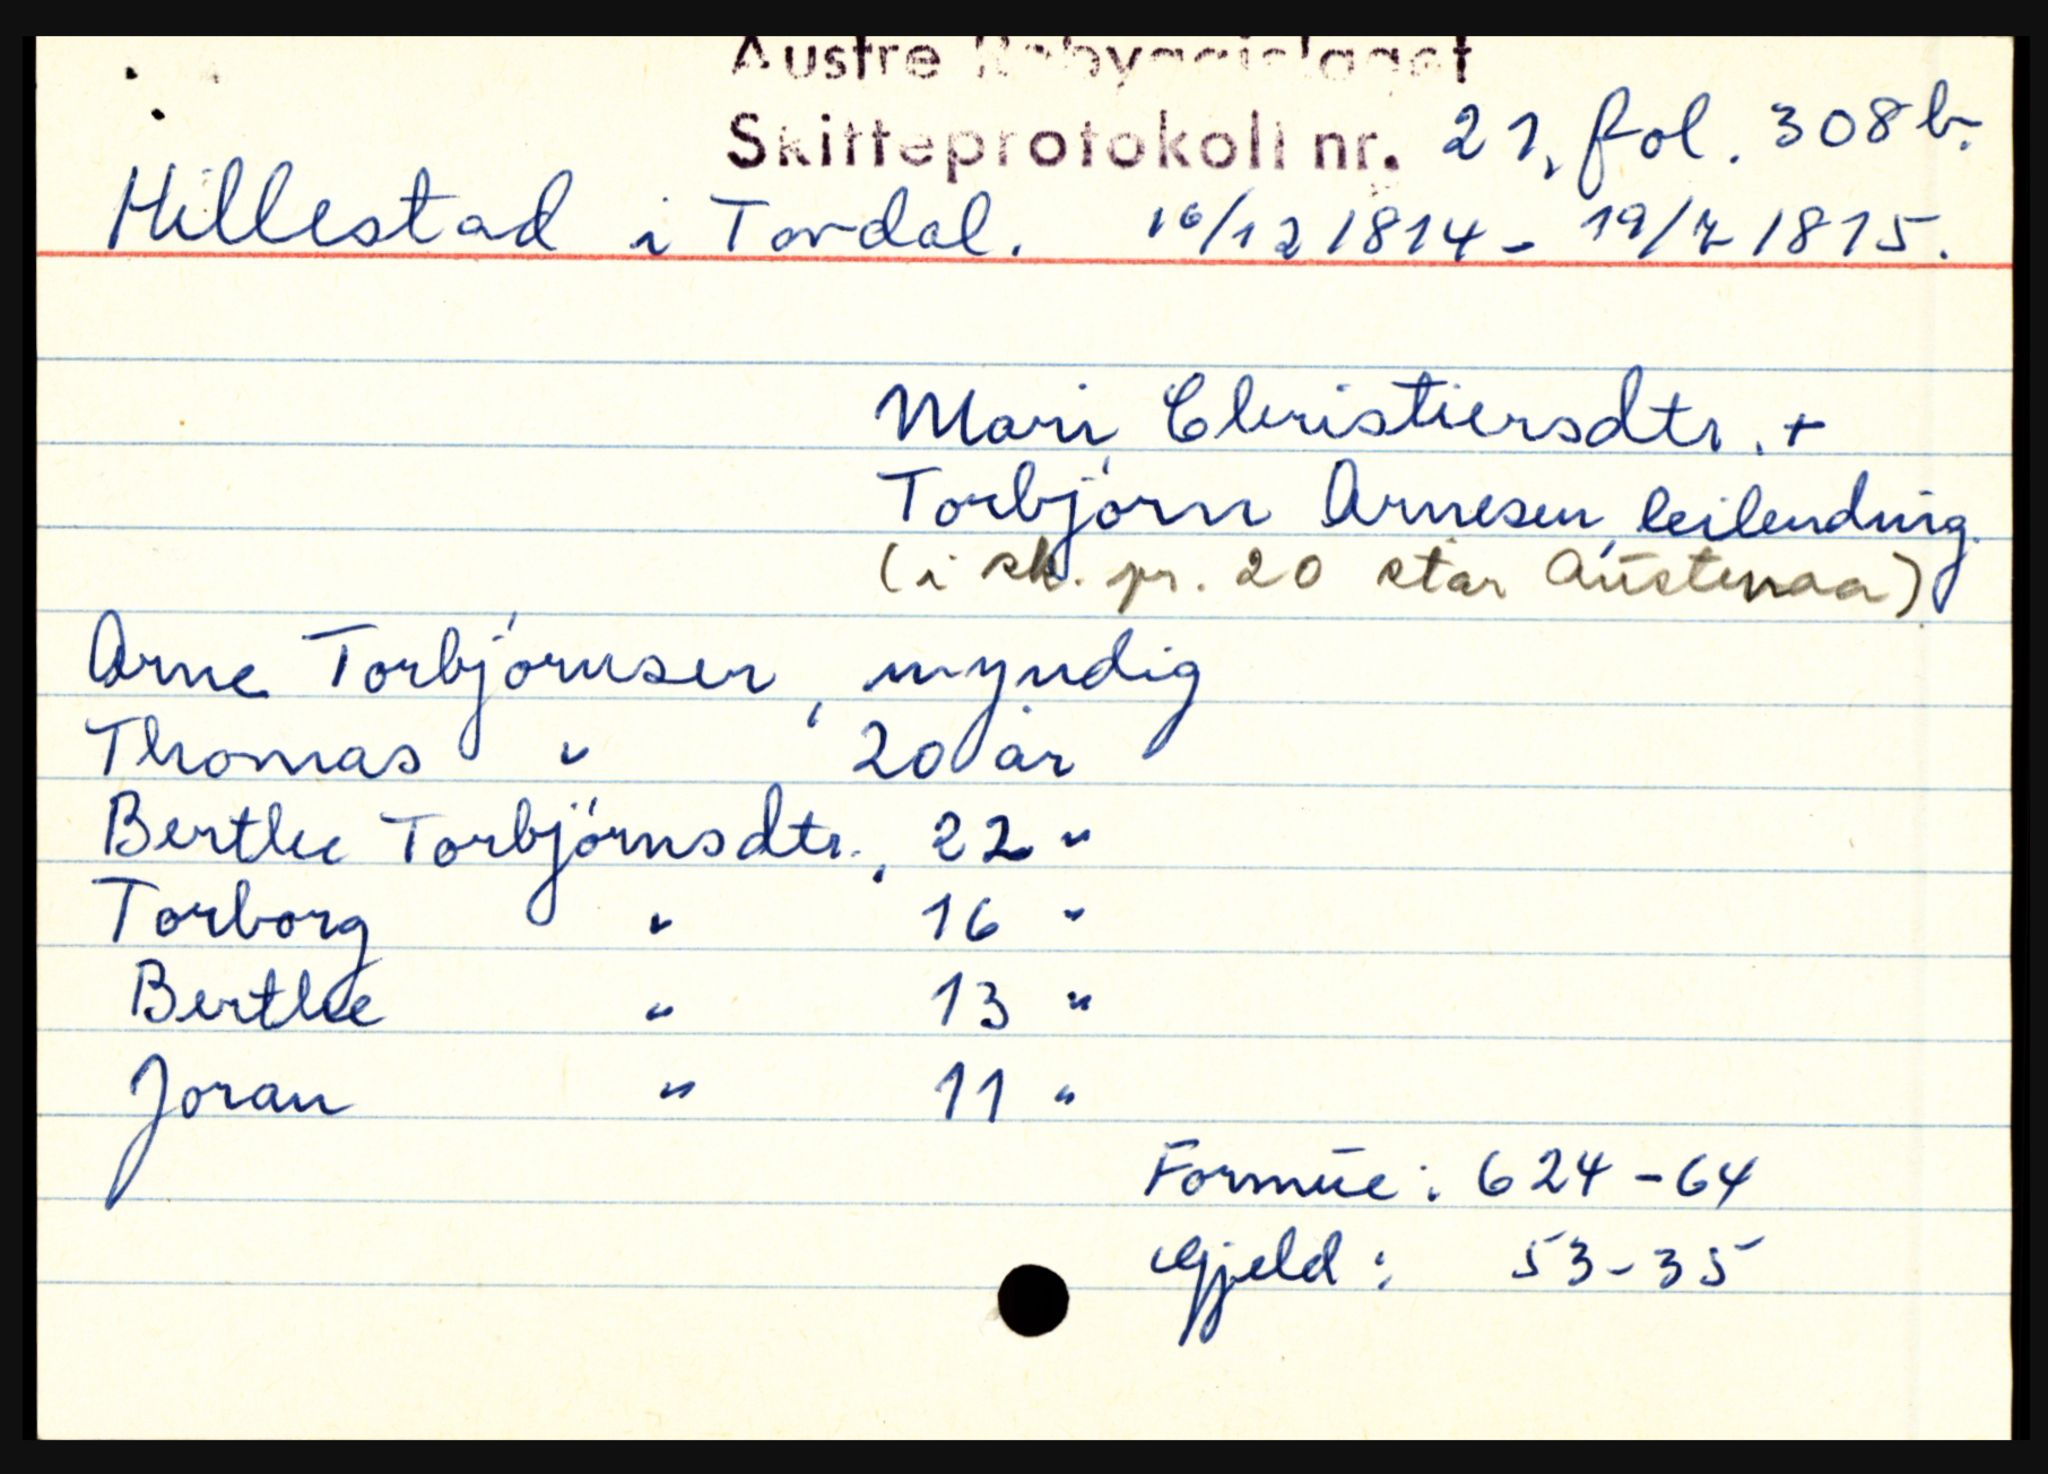 Austre Robyggjelaget
Skifteprotokoll nr. 21, fol. 308 b.
Hillestad i Tovdal. 16/12 1814 - 19/7 1815.
Mari Christiersdtr. +
Torbjørn Arnesen, leilending.
(i sk. pr. 20 står Austenaa)
Arne Torbjørnsen, myndig
Thomas " 20 år
Berthe Torbjørnsdtr., 22 "
Torborg " 16 "
Berthe " 13 "
Joran " 11 "
Formue: 624-64
Gjeld: 53-35